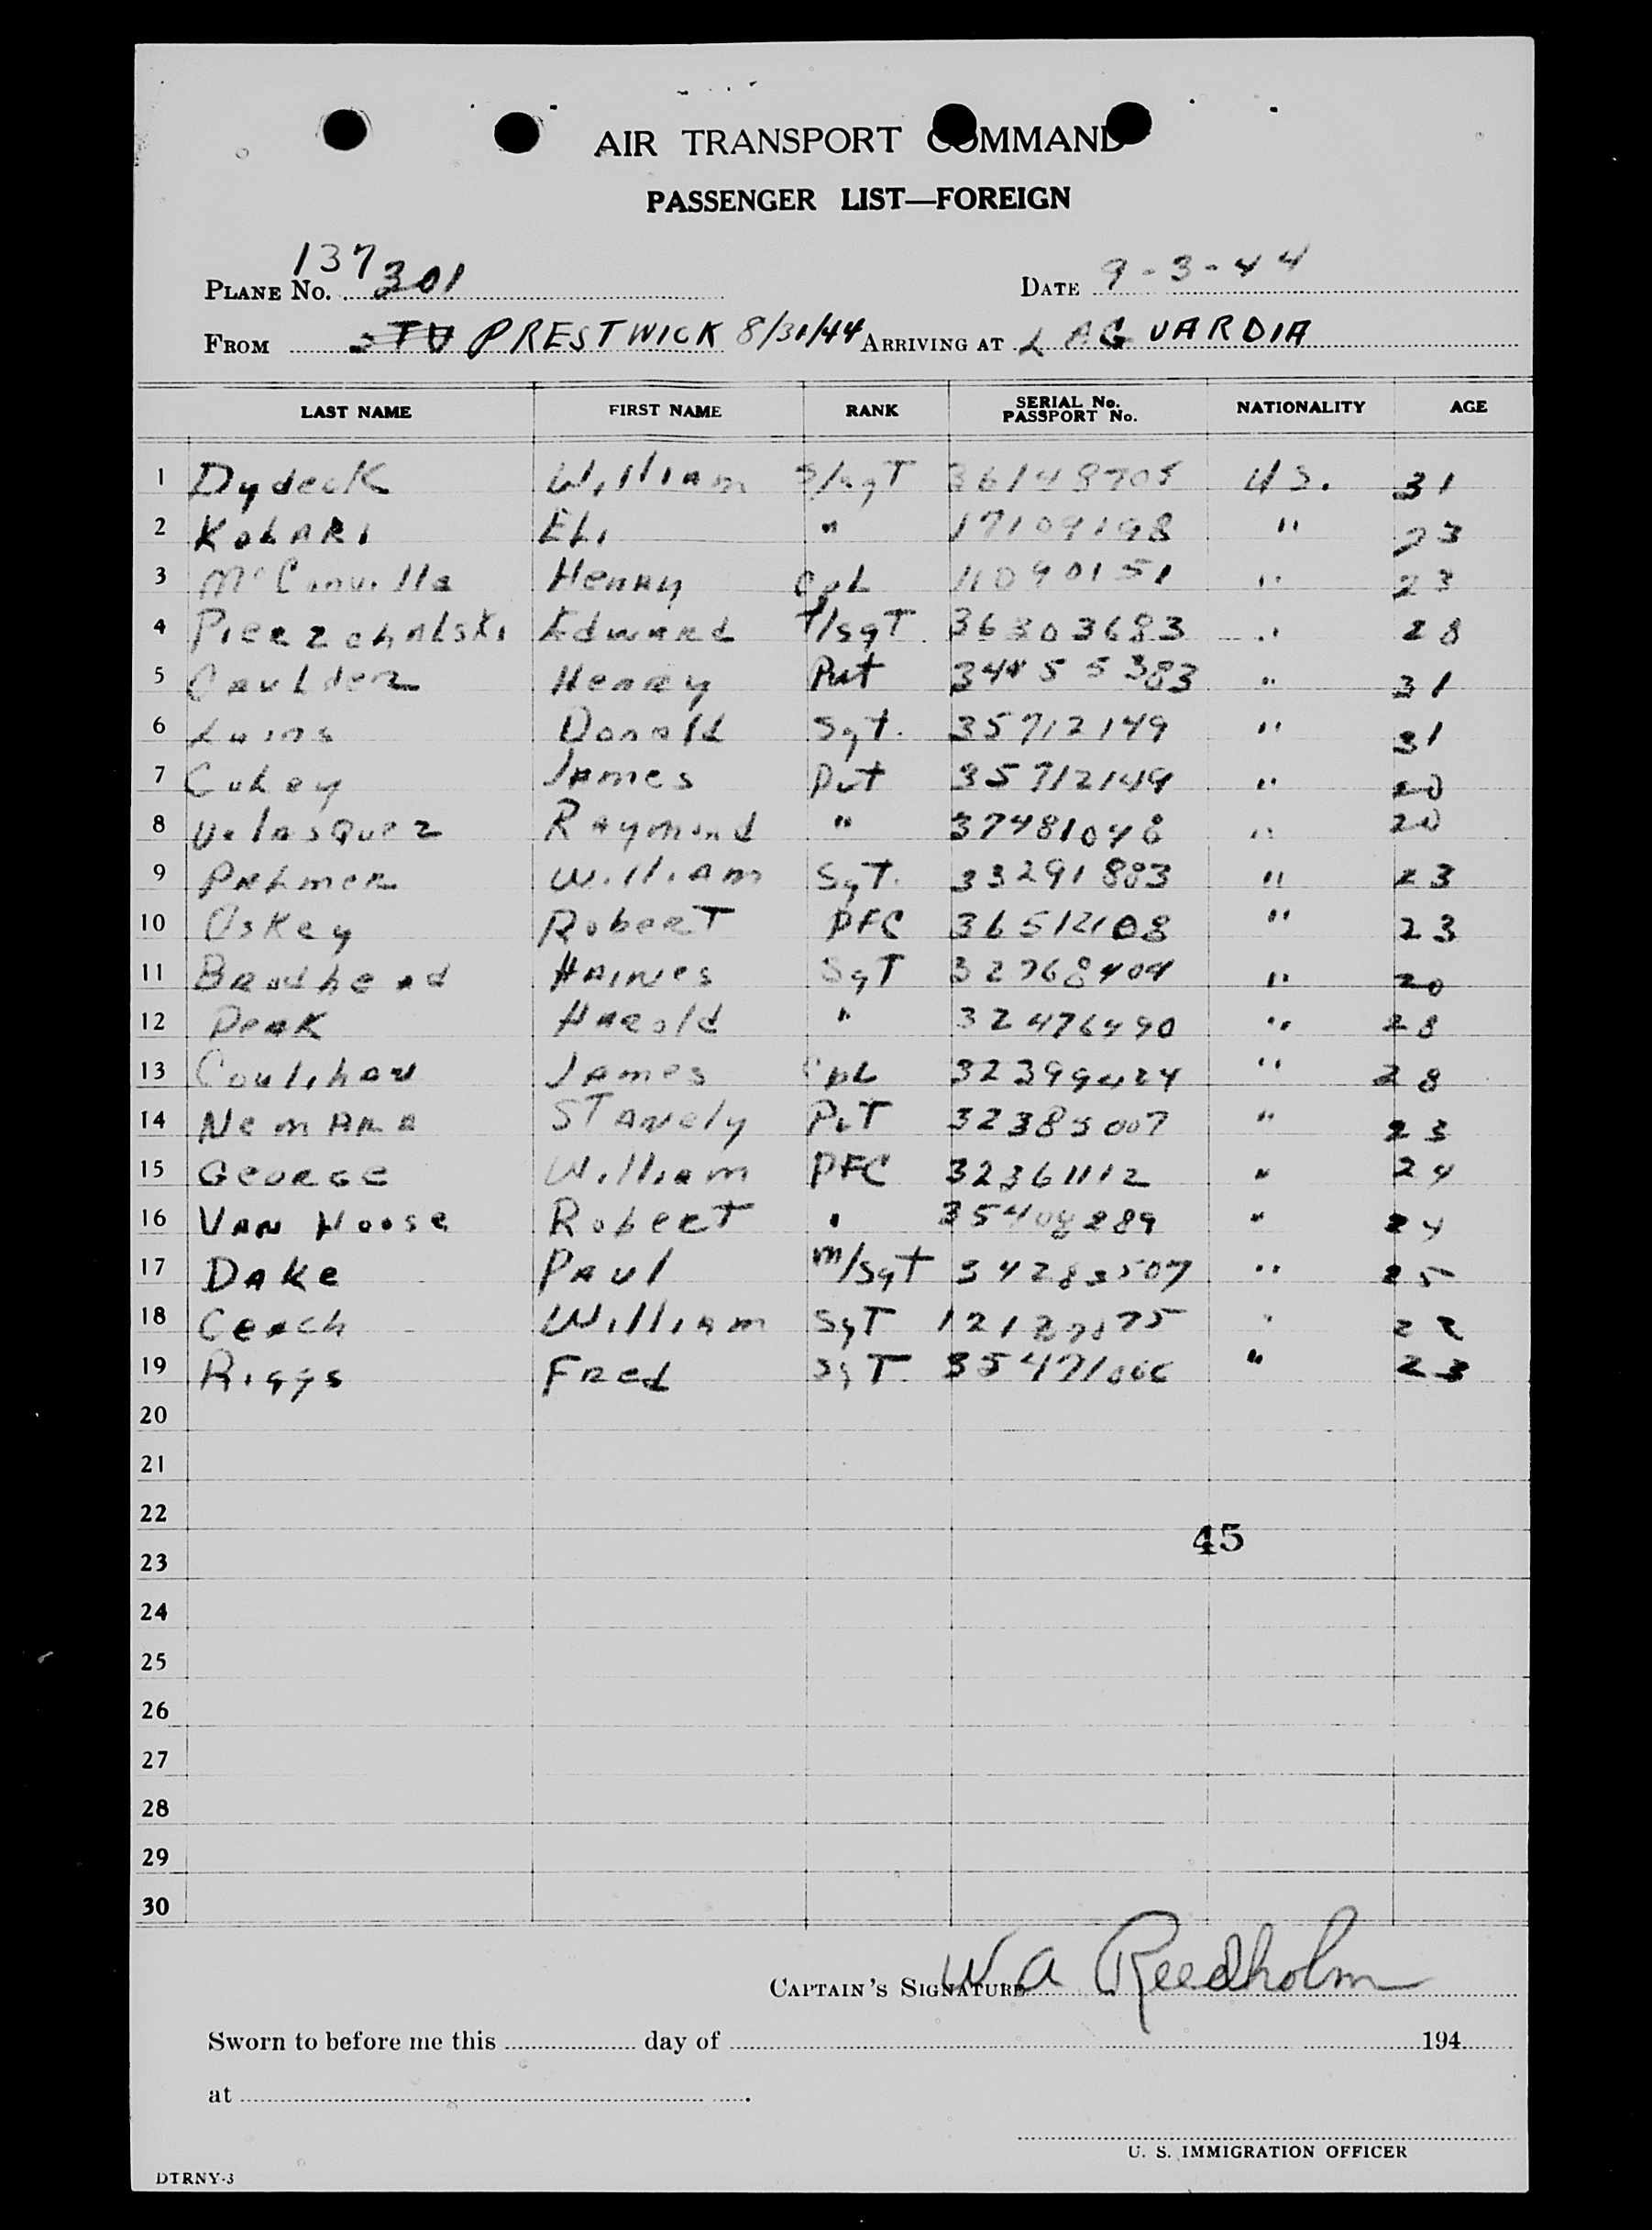 AIR TRANSPORT COMMAND
PASSENGER LIST—FOREIGN
137
PLANE No. 301 DATE 9-3-44
FROM PRESTWICK 8/31/44 ARRIVING AT LAGUARDIA
LAST NAME FIRST NAME RANK SERIAL No. PASSPORT No. NATIONALITY AGE
1 Dydeck William S/sgT 36148705 US. 31
2 KoLARi ELi " 17109198 " 23
3 McConville Henry CpL 11090151 " 23
4 PierzchALski Edward T/sgT 36303683 " 28
5 CauLder Henry Pvt 34455383 " 31
6 Donald Sgt. 35712149 " 31
7 James Pvt 35712149 " 20
8 Velasquez Raymond " 37481048 " 20
9 PALmer William SgT. 33291883 " 23
10 Oskey RoberT PFC 36512108 " 23
11 Brodhead HAINes SgT 32768404 " 20
12 Penk Harold " 32476490 " 28
13 James CpL 32399424 " 28
14 NemARA STANely PvT 32385007 " 23
15 GeorGe William PFC 32361112 " 24
16 VAN Hoose RoberT " 35408289 " 24
17 DAke PAul m/sgt 34283507 " 25
18 William SgT " 22
19 Riggs Fred SgT. 35471066 " 23
20
21
22
45
23
24
25
26
27
28
29
30
CAPTAIN'S SIGNATURE W A Reedholm
Sworn to before me this day of 194
at .
U. S. IMMIGRATION OFFICER
DTRNY-3